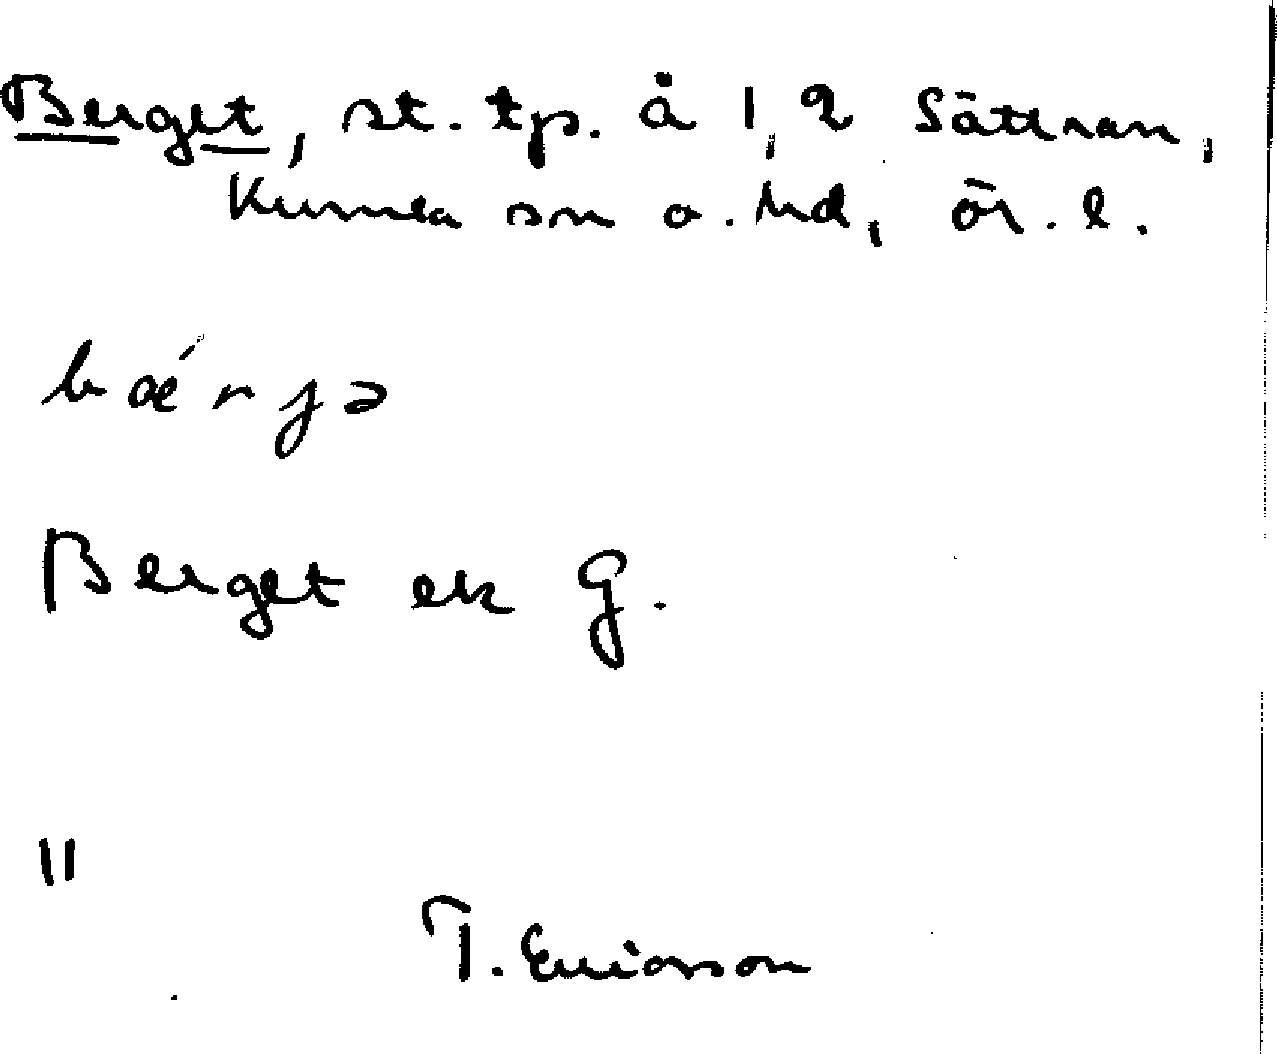 Berget, st. tp. å 1, 2 Sättran,
Kumla sn o. hd, Ör. l.
bǽrjə
Berget ek G.
"
T. Ericsson